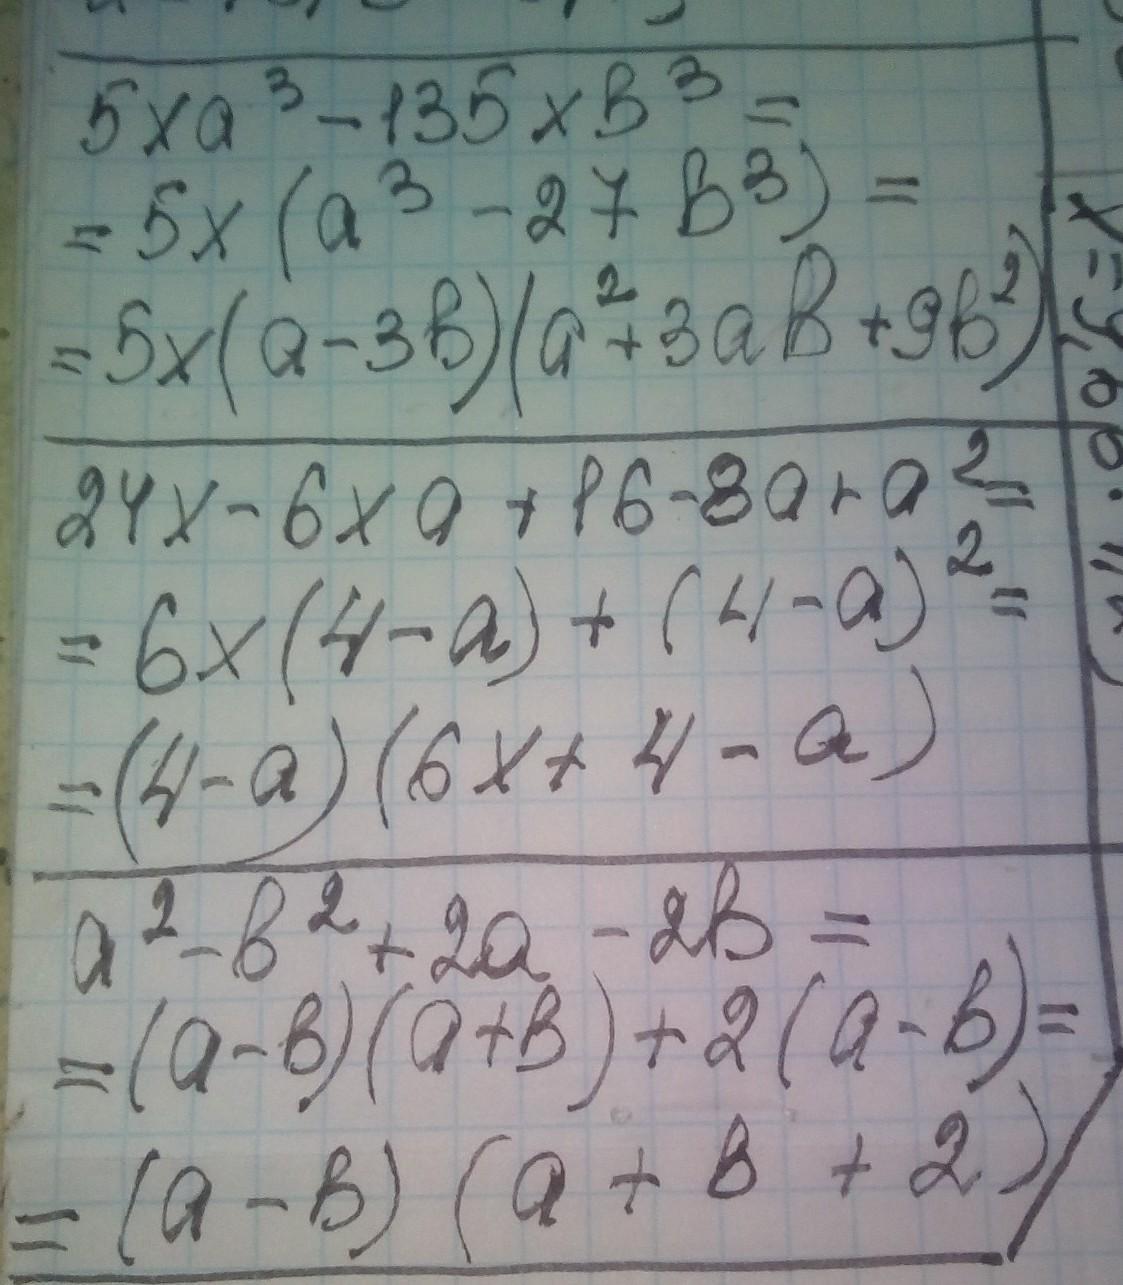 5xa³ - 135xb³ =
= 5x(a³ - 27b³) =
= 5x(a - 3b)(a² + 3ab + 9b²)
24x - 6xa + 16 - 8a + a² =
= 6x(4 - a) + (4 - a)² =
= (4 - a)(6x + 4 - a)
a² - b² + 2a - 2b =
= (a - b)(a + b) + 2(a - b) =
= (a - b)(a + b + 2)